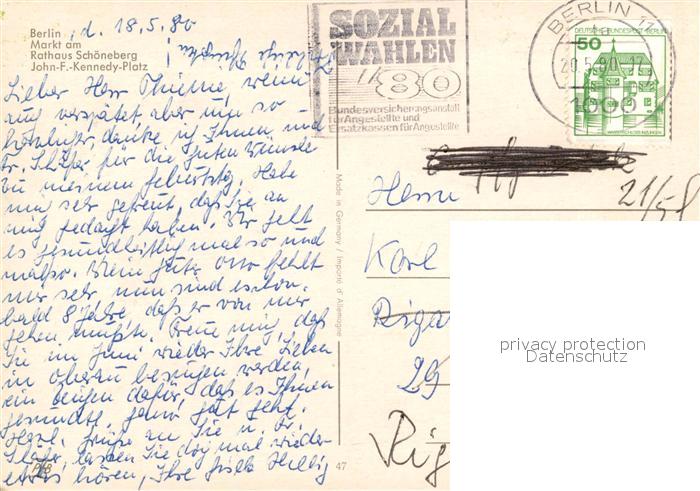 Berlin
Markt am
Rathaus Schöneberg
John-F.-Kennedy-Platz
d. 18.5.80
Lieber Herr Thieme, wenn
auch verspätet aber um so
herzlicher, danke ich Ihnen und
Fr. Schäfer für die guten Wünsche
zu meinem Geburtstag. Habe
mich sehr gefreut, daß Sie an
mich gedacht haben. Mir geht
es gesundheitlich mal so und
mal so. Mein guter Otto fehlt
mir sehr nun sind es schon
bald 8 Jahre, daß er von mir
gehen mußte. Freue mich, daß
Sie im Juni wieder Ihre Lieben
in Oberau besuchen werden,
ein Zeichen dafür, daß es Ihnen
gesundh. ganz gut geht.
Herzl. Grüße an Sie u. Fr.
Schäfer, lassen Sie doch mal wieder
etwas hören, Ihre
SOZIAL
WAHLEN
80
Bundesversicherungsanstalt
für Angestellte und
Ersatzkassen für Angestellte
BERLIN 11
20.5.80-17
1000
DEUTSCHE BUNDESPOST BERLIN
50
WASSERSCHLOSS INZLINGEN
Herrn
21/51
Karl
Riga
29
Rig
Made in Germany / Importé d'Allemagne
47
privacy protection
Datenschutz